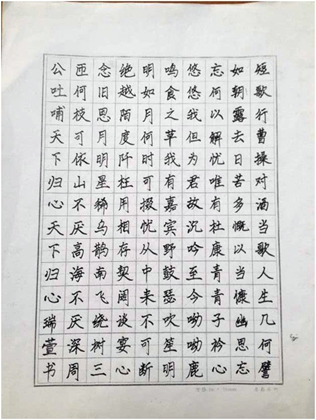 短歌行曹操对酒当歌人生几何譬
如朝露去日苦多慨当以慷幽思难
忘何以解忧唯有杜康青青子衿悠
悠我心但为君故沉吟至今呦呦鹿
鸣食野之苹我有嘉宾鼓瑟吹笙明
明如月何时可掇忧从中来不可断
绝越陌度阡枉用相存契阔谈宴心
念旧恩月明星稀乌鹊南飞绕树三
匝何枝可依山不厌高海不厌深周
公吐哺天下归心天下归心瑞萱书